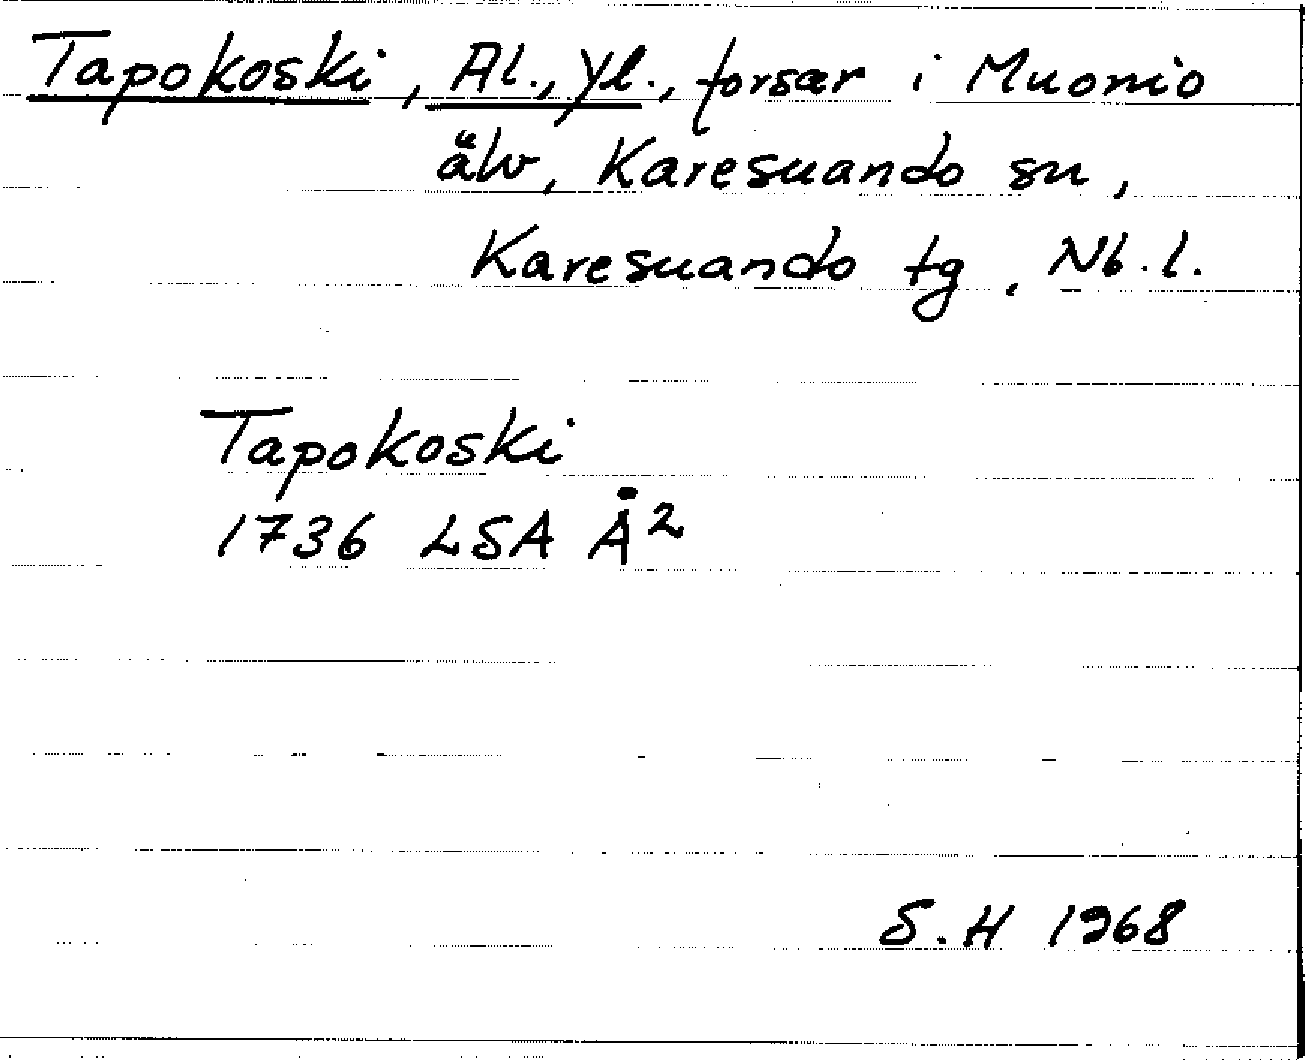 Tapokoski, Al., Yl., forsar i Muonio
älv, Karesuando sn,
Karesuando tg, Nb. l.
Tapokoski
1736 LSA Å2
S. H 1968